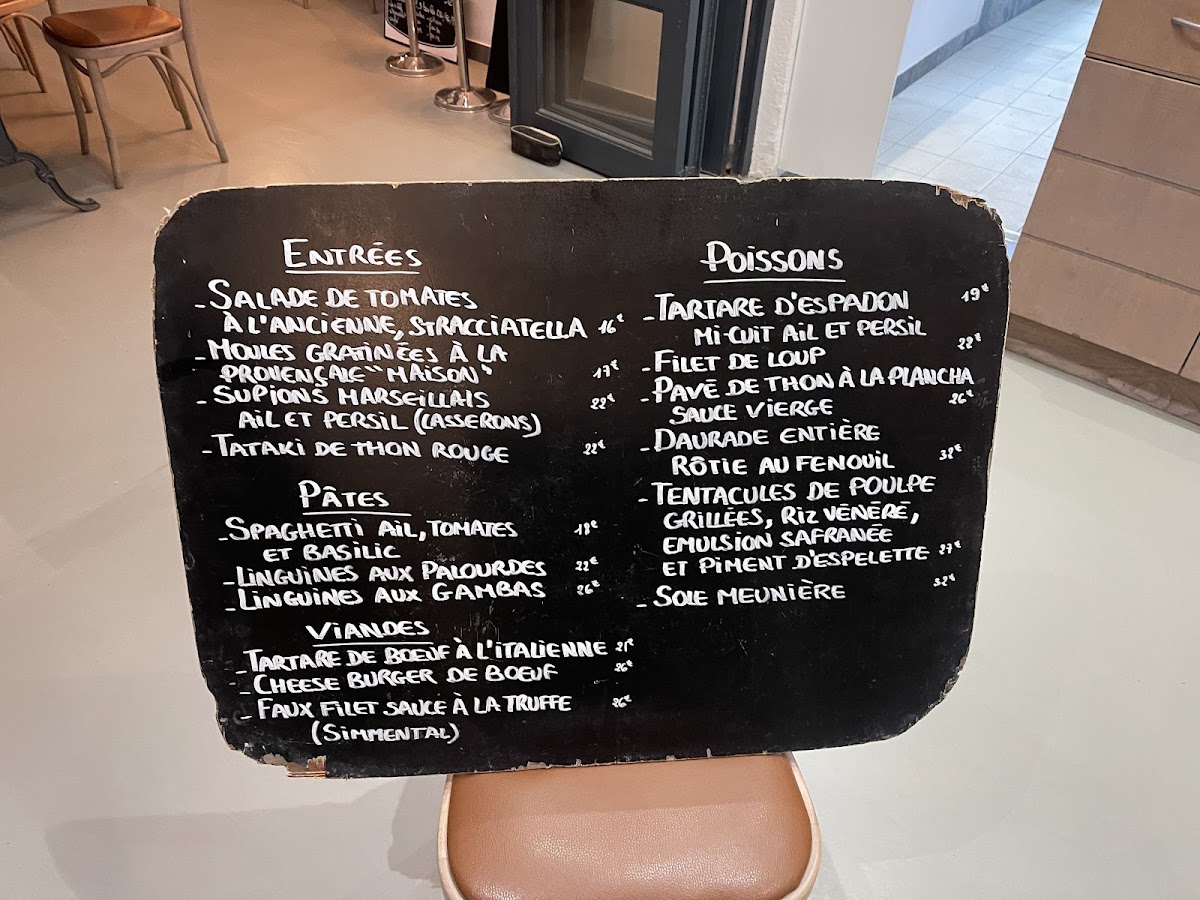 ENTRÉES
- SALADE DE TOMATES
À L'ANCIENNE, STRACCIATELLA 16€
- MOULES GRATINÉES À LA
PROVENÇALE "MAISON" 17€
- SUPIONS MARSEILLAIS 22€
AIL ET PERSIL (CASSERONS)
- TATAKI DE THON ROUGE 22€
PÂTES
- SPAGHETTI AIL, TOMATES 18€
ET BASILIC
- LINGUINES AUX PALOURDES 22€
- LINGUINES AUX GAMBAS 26€
VIANDES
- TARTARE DE BOEUF À L'ITALIENNE 21€
- CHEESE BURGER DE BOEUF 26€
- FAUX FILET SAUCE À LA TRUFFE 26€
(SIMMENTAL)
POISSONS
- TARTARE D'ESPADON 19€
MI-CUIT AIL ET PERSIL
- FILET DE LOUP 22€
- PAVÉ DE THON À LA PLANCHA
SAUCE VIERGE 26€
- DAURADE ENTIÈRE
RÔTIE AU FENOUIL 32€
- TENTACULES DE POULPE
GRILLÉES, RIZ VÉNÉRÉ,
EMULSION SAFRANÉE
ET PIMENT D'ESPELETTE 27€
- SOLE MEUNIÈRE 32€